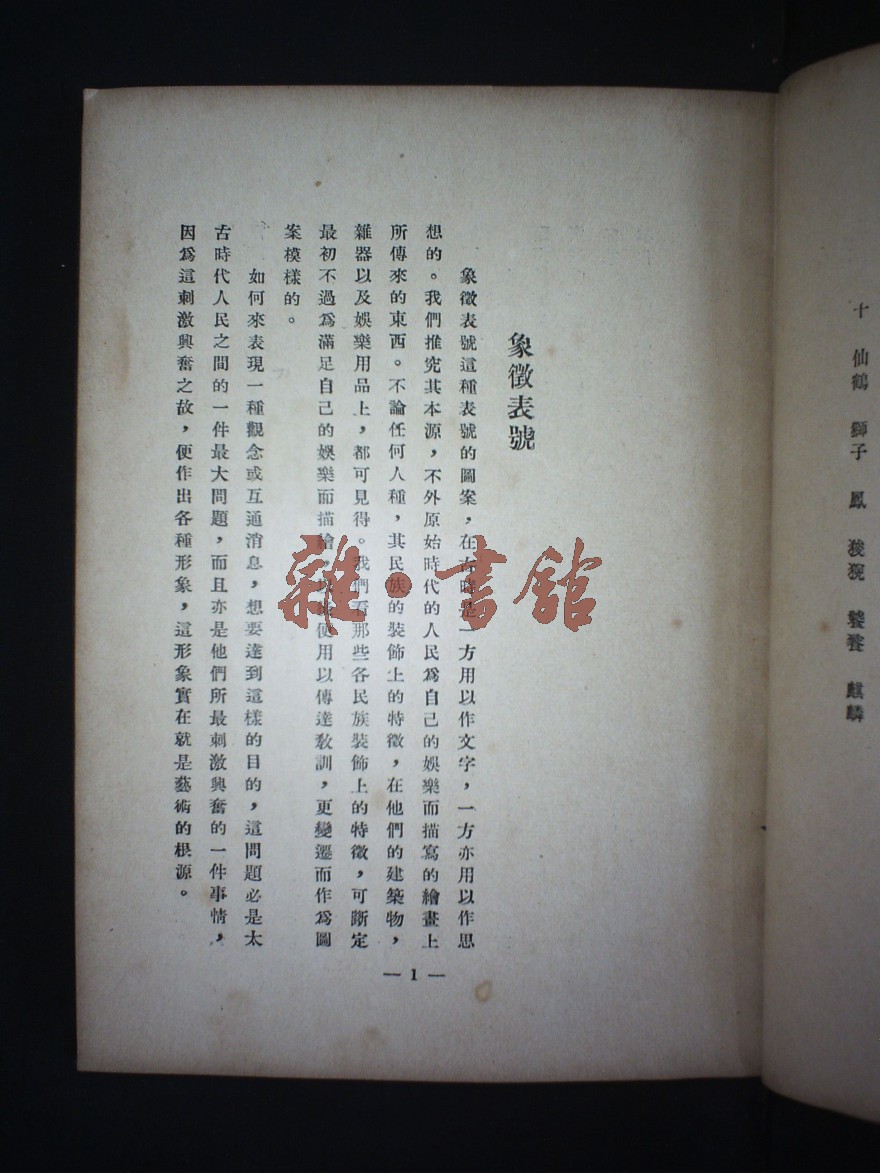 十 仙鶴 獅子 鳳 狻猊 饕餮 麒麟
象徵表號
象徵表號這種表號的圖案，在古時是一方用以作文字，一方亦用以作思
想的。我們推究其本源，不外原始時代的人民爲自己的娛樂而描寫的繪畫上
所傳來的東西。不論任何人種，其民族的裝飾上的特徵，在他們的建築物，
雜器以及娛樂用品上，都可見得。我們看那些各民族裝飾上的特徵，可斷定
最初不過爲滿足自己的娛樂而描繪，便用以傳達敎訓，更變遷而作爲圖
案模樣的。
如何來表現一種觀念或互通消息，想要達到這樣的目的，這問題必是太
古時代人民之間的一件最大問題，而且亦是他們所最刺激興奮的一件事情，
因爲這刺激興奮之故，便作出各種形象，這形象實在就是藝術的根源。
— 1 —
雜·書館